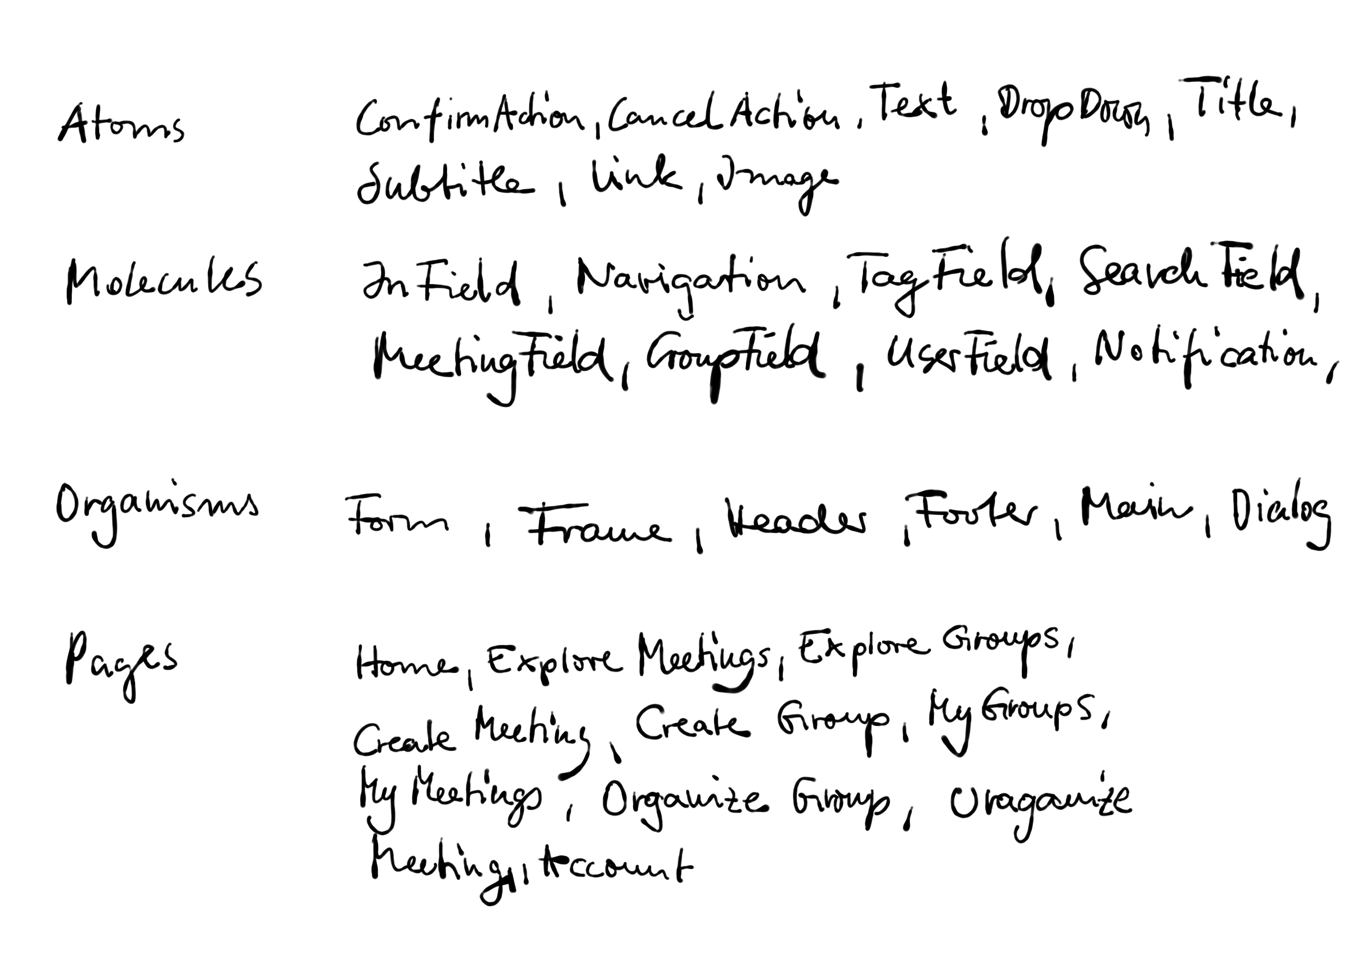 Atoms ConfirmAction, CancelAction, Text, DropDown, Title,
Subtitle, Link, Image
Molecules InField, Navigation, TagField, SearchField,
MeetingField, GroupField, UserField, Notification,
Organisms Form, Frame, Header, Footer, Main, Dialog
Pages Home, Explore Meetings, Explore Groups,
Create Meeting, Create Group, My Groups,
My Meetings, Organize Group, Oraganize
Meeting, Account